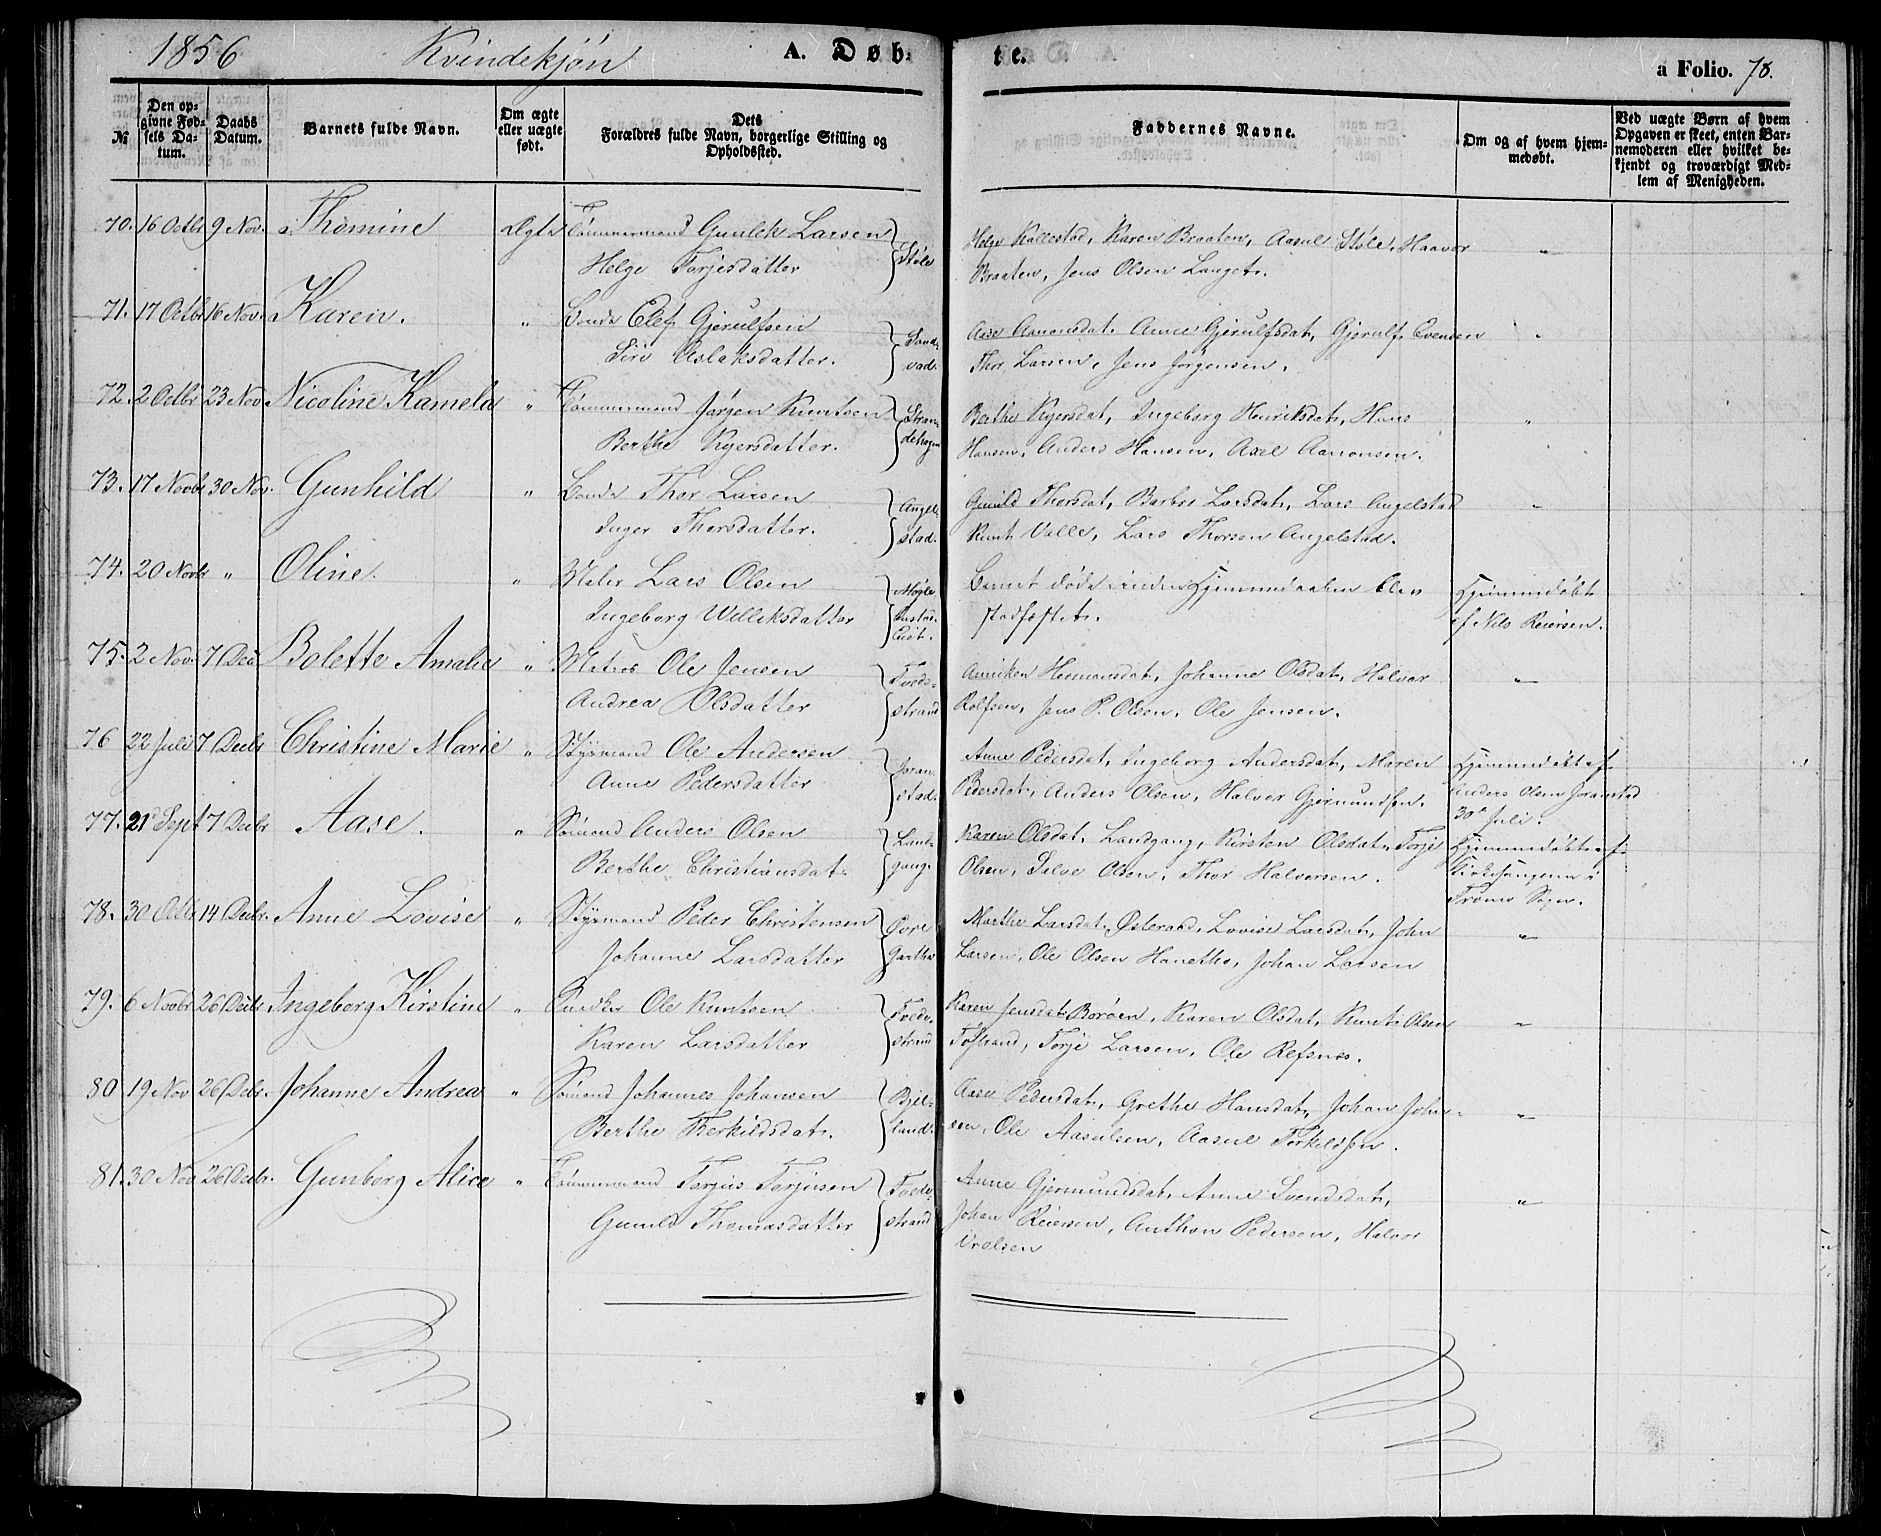 1856 Kvindekjøn A. Døb-
te. a Folio. 78.
№
Den op-
givne Fød-
sels Da-
tum.
Daabs
Datum.
Barnets fulde Navn.
Om ægte
eller uægte
født.
Dets
Forældres fulde Navn, borgerlige Stilling og
Opholdssted.
Faddernes Navne.
Om og af hvem hjem-
medøbt.
Ved uægte Børn af hvem
Opgaven er skeet, enten Bar-
nemoderen eller hvilket be-
kjendt og troværdigt Med-
lem af Menigheden.
70. 16 Octbr 9 Nov. Thomine Ægte Tømmermand Gunlek Larsen
Helge Torjesdatter
Støle
Helge Kallestad, Karen Braaten, Aasul Støle, Haavor
Braaten, Jens Olsen Langet. "
71. 17 Octbr 16 Nov. Karen. " Bonde Elef Gjerulfsen
Siri Aslaksdatter.
Sand-
vad.
Aase Aanonsdat. Anne Gjerulfsdat, Gjerulf Evensen
Thor Larsen, Jens Jørgensen. "
72. 2 Octbr 23 Nov Nicoline Kamela " Tømmermand Jørgen Knutsen
Berthe Kgersdatter.
Stran-
dehagen
Berthe Kgersdat, Ingeborg Henriksdat, Hans
Hansen, Anders Hansen, Axel Aanonsen. "
73. 17 Novbr 30 Nov. Gunhild " Bonde Thor Larsen
Inger Thorsdatter.
Angel-
stad.
Gunild Thorsdat, Barbro Larsdat, Lars Angelstad
Knut Valle, Lars Thorsen Angelstad. "
74. 20 Novbr " Oline. " Lars Olsen
Ingeborg Williksdatter
Barnet døde inden Hjemmedaaben blev
stadfæstet.
Hjemmedøbt
af Nils Reiersen.
75. 2 Nov. 7 Dec Bolette Amalie " Matros Ole Jensen
Andrea Olsdatter
Tvede-
strand
Anniken Hermansdat, Johanne Olsdat, Halvor
Rolfsen, Jens P. Olsen, Ole Jensen. "
76 22 Juli 7 Decbr Christine Marie " Styrmand Ole Andersen
Anne Pedersdatter
Joran-
stad.
Anne Pedersdat, Ingeborg Andersdat, Maren
Pedersdat, Anders Olsen, Halvor Gjermundsen.
Hjemmedøbt af
Anders Olsen Joranstad
30 Juli.
77. 21 Sept 7 Decbr Aase. " Sømand Anders Olsen
Berthe Christiansdat.
Land-
gang.
Karen Olsdat. Landgang, Kirsten Olsdat, Torje
Olsen, Salve Olsen, Thor Halvorsen.
Hjemmedøbt af
Kirkesangeren i
Tromø Sogn.
78. 30 Octbr 14 Decbr. Anne Lovise " Styrmand Peder Christensen
Johanne Larsdatter
Øvre
Gartha
Marthe Larsdat. Østeraad, Lovise Larsdat, John
Larsen, Ole Olsen Hanetho, Johan Larsen "
79. 6 Novbr 26 Decbr Ingeborg Kirstine " Snedker Ole Knutsen
Karen Larsdatter
Tvede-
strand
Karen Jensdat. Borøen, Karen Olsdat, Knut Olsen
Tøstrand, Torje Larsen, Ole Refsnes. "
80 19 Nov 26 Decbr. Johanne Andrea " Sømand Johannes Johansen
Berthe Terkildsdat.
Bjel-
land.
Aase Pedersdat, Grethe Hansdat, Johan John-
sen, Ole Aasulsen, Aasul Terkildsen. "
81. 30 Nov 26 Decbr. Gunborg Alice " Tømmermand Torjus Torjusen
Gunild Thomasdatter
Tvede-
strand
Anne Gjermundsdat, Anne Svendsdat,
Johan Reiersen, Anthon Pedersen, Halvor
Vrolsen "